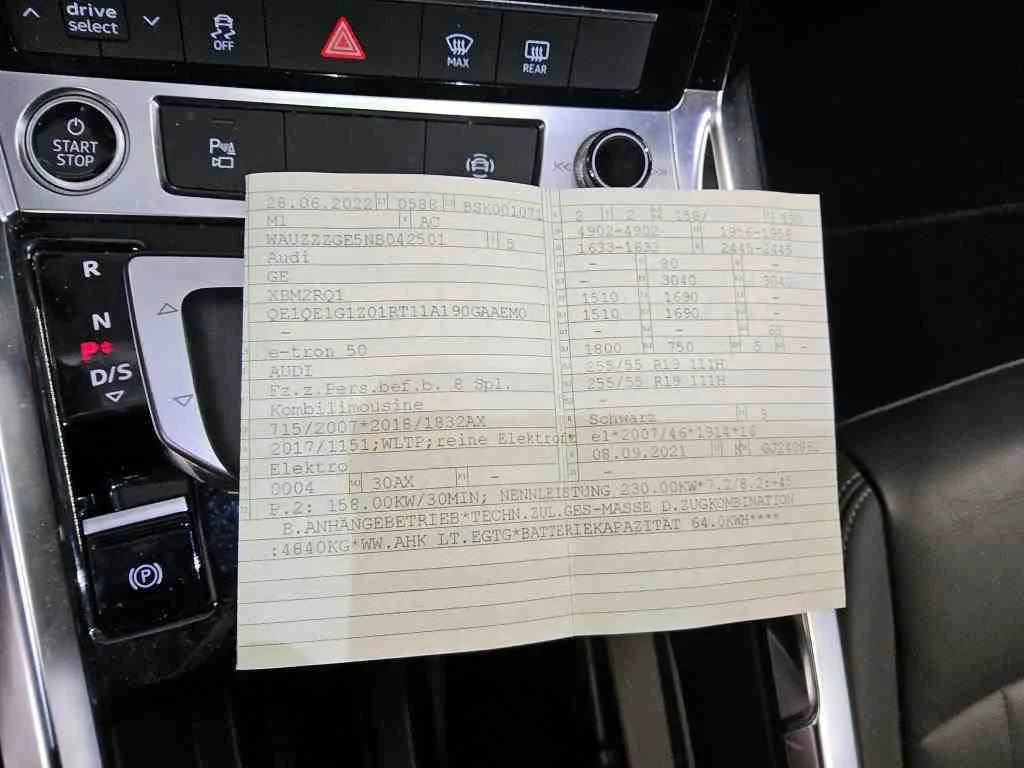 drive
select
OFF
MAX
REAR
START
STOP
R
N
P
D/S
28.06.2022 D5BR BSK001071
M1 AC
WAUZZZGE5NB042501 5
Audi
GE
XBM2RQ1
QE1QE1G1Z01RT11A190GAAEM0
-
e-tron 50
AUDI
Fz.z.Pers.bef.b. 8 Spl.
Kombilimousine
715/2007*2018/1832AX
2017/1151;WLTP;reine Elektro
Elektro
0004 30AX -
2 2 158/ 190
4902-4902 1956-1956
1633-1633 2445-2445
- 80 -
- 3040 3040
1510 1690 -
1510 1690 -
- - 69
1800 750 5 -
255/55 R19 111H
255/55 R19 111H
-
Schwarz 9
e1*2007/46*1914*16
08.09.2021
-
P.2: 158.00KW/30MIN; NENNLEISTUNG 230.00KW*7.2/8.2:+45
B.ANHÄNGEBETRIEB*TECHN.ZUL.GES-MASSE D.ZUGKOMBINATION
:4840KG*WW.AHK LT.EGTG*BATTERIEKAPAZITÄT 64.0KWH****